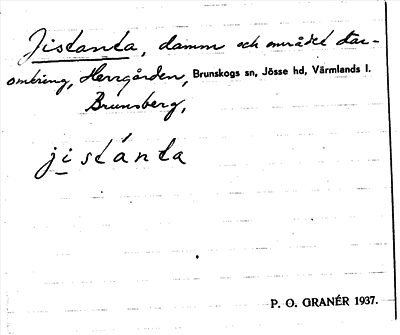 Jistanta, damm och området där-
omkring, Herrgården, Brunskogs sn, Jösse hd, Värmlands l.
Brunsberg,
jistánta
P. O. GRANÉR 1937.